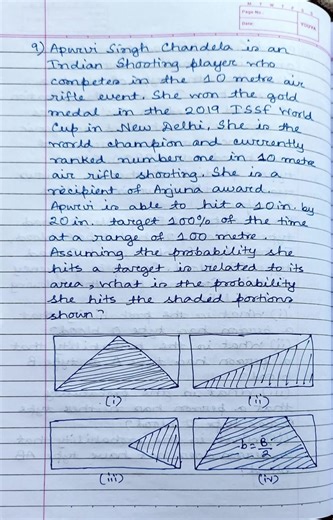 Page No.
Date
9) Apurvi Singh Chandela is an
Indian Shooting player who
competes in the 10 metre air
rifle event. She won the gold
medal in the 2019 ISSF World
Cup in New Delhi. She is the
world champion and currently
ranked number one in 10 metre
air rifle shooting. She is a
recipient of Arjuna award.
Apurvi is able to hit a 10in. by
20 in. target 100% of the time
at a range of 100 metre.
Assuming the probability she
hits a target is related to its
area, what is the probability
she hits the shaded portions
shown?
(i) (ii)
b = B/2
(iii) (iv)